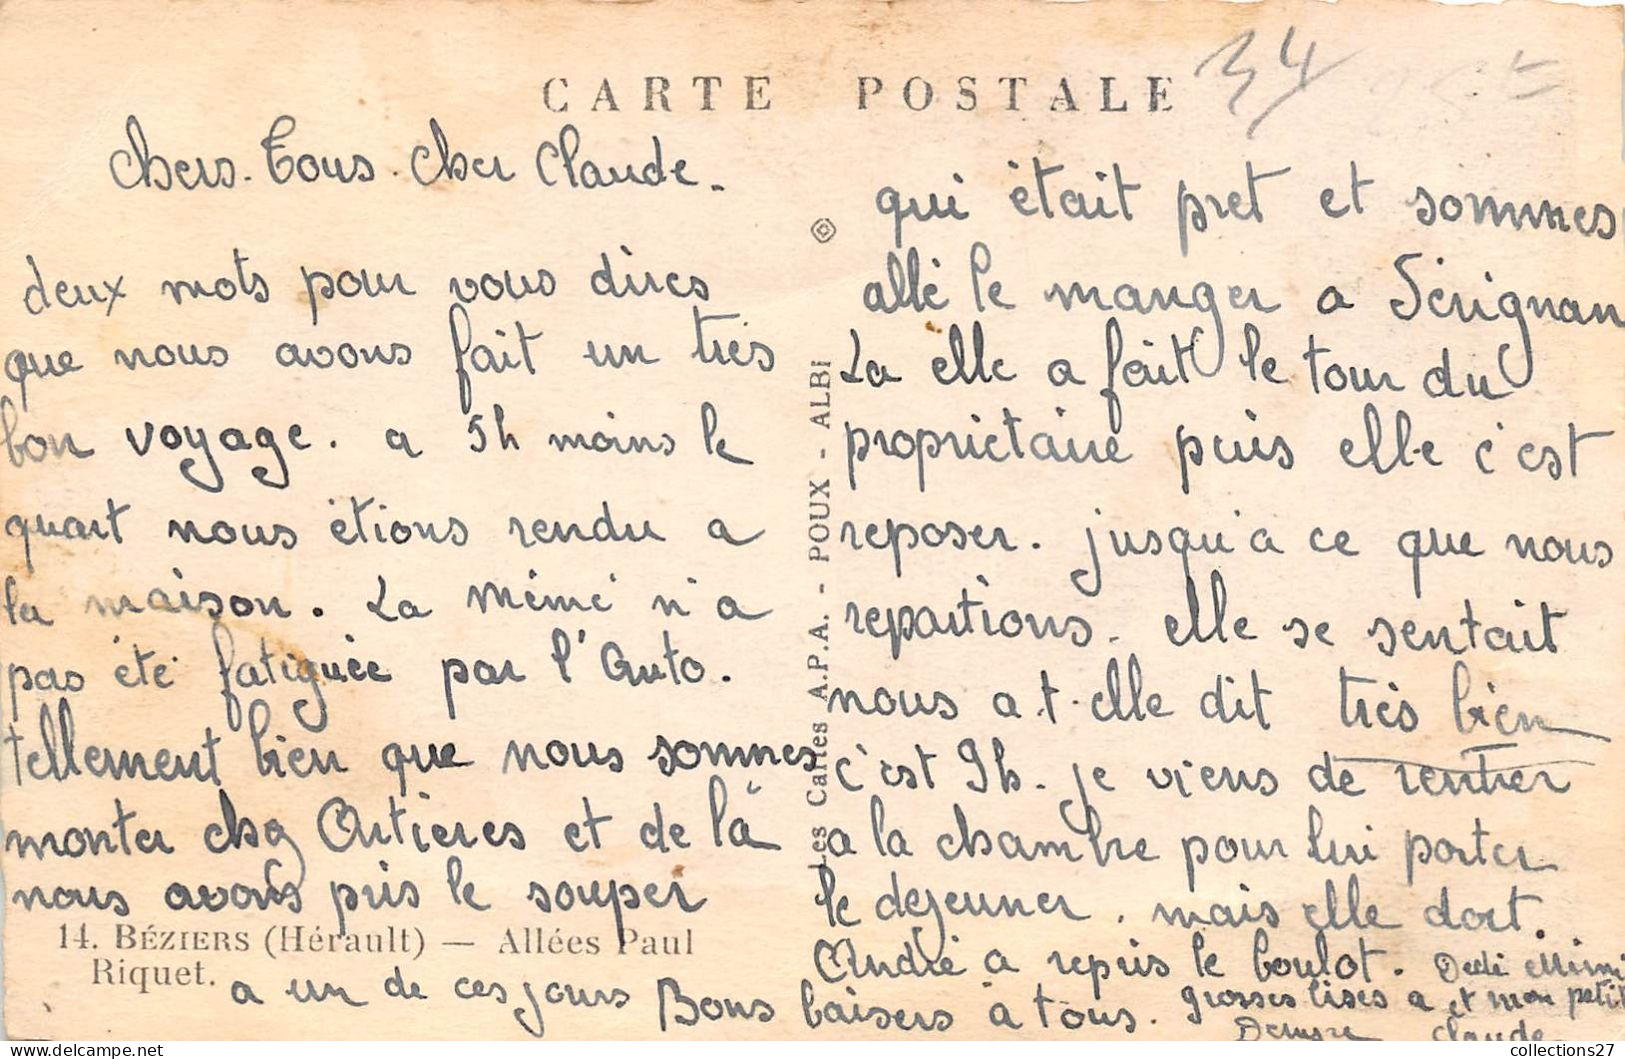 CARTE POSTALE
34
Chers. Tous. Cher Claude.
deux mots pour vous dires
que nous avons fait un tres
bon voyage. a 5h moins le
quart nous étions rendu a
la maison. La mémé n'a
pas été fatiguée par l'Auto.
tellement bien que nous sommes
monter chez Ortieres et de là
nous avons pris le souper
14. BÉZIERS (Hérault) — Allées Paul
Riquet.
Les Cartes A.P.A. - POUX - ALBI
qui était pret et sommes
allé le manger a Sérignan
La elle a fait le tour du
proprietaire puis elle c'est
reposer. jusqu'a ce que nous
repartions. elle se sentait
nous a.t.elle dit très bien
c'est 9h. je viens de rentrer
a la chambre pour lui porter
le dejeuner. mais elle dort.
André a repris le boulot.
a un de ces jours Bons baisers à tous.
Dedé Mimi
grosses bises a et mon petit
Claude.
collections27